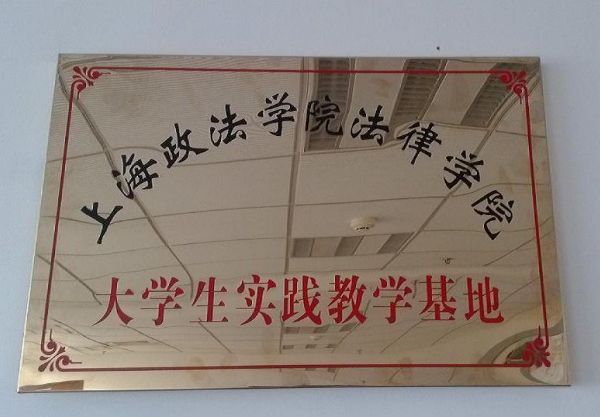 上海政法学院法律学院
大学生实践教学基地